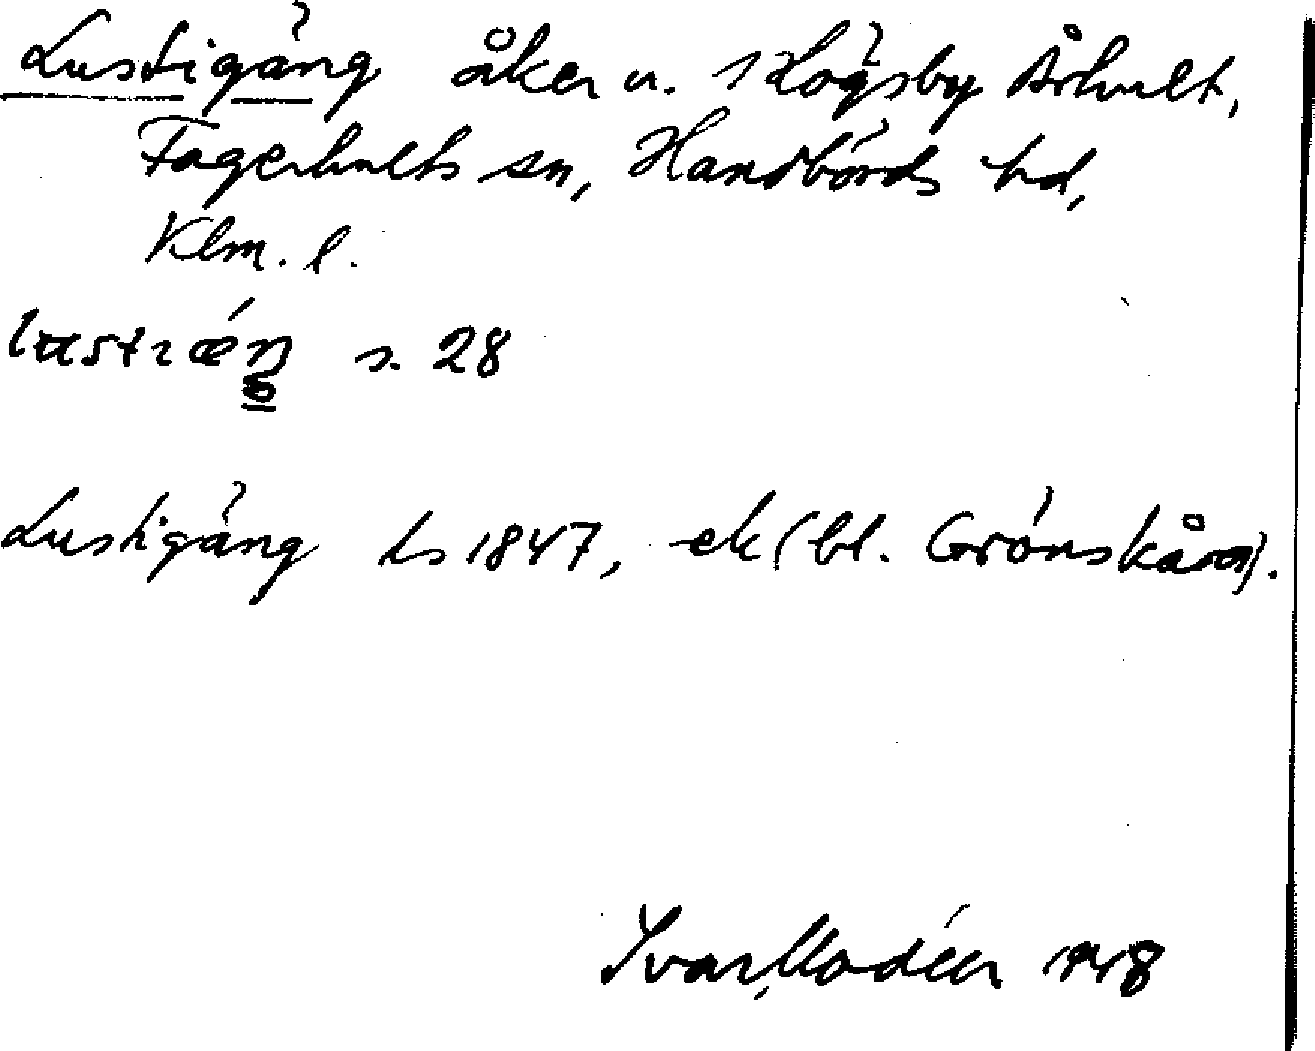 Lustigäng åker u. Högsby Århult,
Fagerhults sn, Handbörds hd,
Klm. l.
s. 28
Lustigäng Ls 1847, ek (bl. Grönskåra).
Ivar Modéer 1948